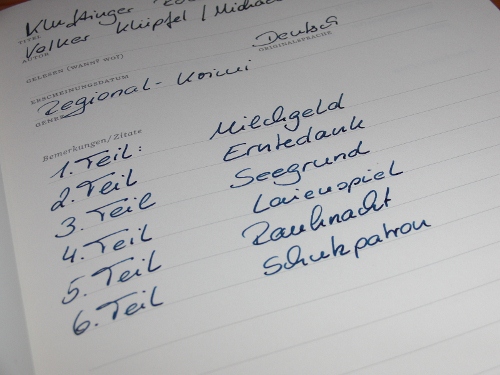 Kluftinger
TITEL
Volker Klüpfel / Michael
AUTOR
Deutsch
GELESEN (WANN? WO?)
ORIGINALSPRACHE
ERSCHEINUNGSDATUM
Regional-Krimi
GENRE
Bemerkungen/Zitate
1. Teil: Milchgeld
2. Teil Erntedank
3. Teil Seegrund
4. Teil Laienspiel
5. Teil Rauhnacht
6. Teil Schutzpatron